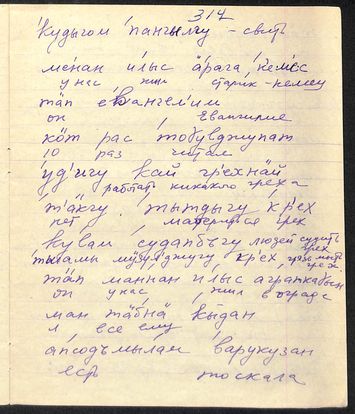 314
кудыгой пангылгу - свить
мена́н и́лыс а́рага ке́мес
у нас жил старик-кемец
тӓп ева́нгел'им
он Евангилие
кӧт рас тобулджупат
10 раз читал
уд'игу кай гре́хнӓй
работать никакого греха
т'а́кгу. тытдыгу кр'ех
нет, материться грех
кула́м судапбыгу людей судить грех
тӓп маннан и́лыс аграпкабын
он у нас жил в ограде
ман та́бнӓ кыдан
я все ему
апсодъмыла́м варукузан
есть таскала